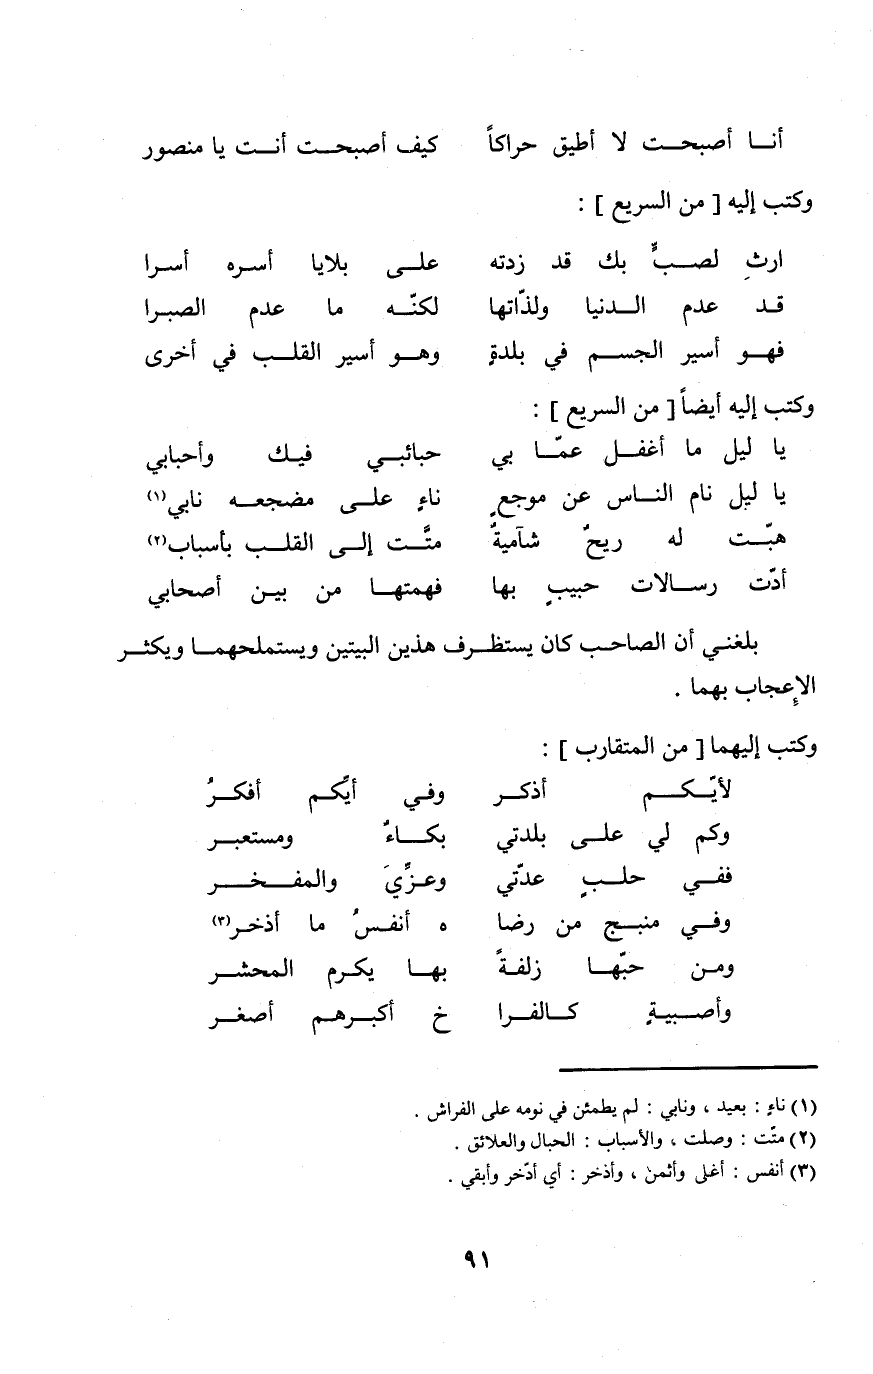 أنــا أصبحــت لا أطيق حراكاً كيف أصبحــت أنــت يا منصور
وكتب إليه [ من السريع ] :
ارثِ لصــبٍّ بك قد زدته علــى بلايا أسره أسـرا
قــد عدم الــدنيا ولذّاتها لكنّــه ما عدم الصبـرا
فهــو أسير الجســم في بلدةٍ وهــو أسير القلــب في أخرى
وكتب إليه أيضاً [ من السريع ] :
يا ليل ما أغفــل عمّــا بي حبائبــي فيــك وأحبابي
يا ليل نام النــاس عن موجعٍ ناءٍ علــى مضجعــه نابي(١)
هبّــت له ريحٌ شآميةٌ متَّــت إلــى القلــب بأسباب(٢)
أدّت رســالات حبيبٍ بها فهمتهــا من بيــن أصحابي
بلغنــي أن الصاحــب كان يستظــرف هذين البيتين ويستملحهمــا ويكثــر
الإعجاب بهما .
وكتب إليهما [ من المتقارب ] :
لأيّــكــم أذكــر وفــي أيّكــم أفكــرُ
وكم لي علــى بلدتي بكــاءٌ ومستعبــر
ففــي حلــبٍ عدّتي وعــزِّيَ والمفــخــر
وفــي منبــج من رضا ه أنفــسُ ما أذخــر(٣)
ومـن حبّهــا زلفــةً بهــا يكــرم المحشــر
وأصــبيــةٍ كــالفــرا خ أكبــرهــم أصغــر
(١) ناءٍ : بعيد ، ونابي : لم يطمئن في نومه على الفراش .
(٢) متّت : وصلت ، والأسباب : الحبال والعلائق .
(٣) أنفس : أغلى وأثمن ، وأذخر : أي أدّخر وأبقي .
٩١